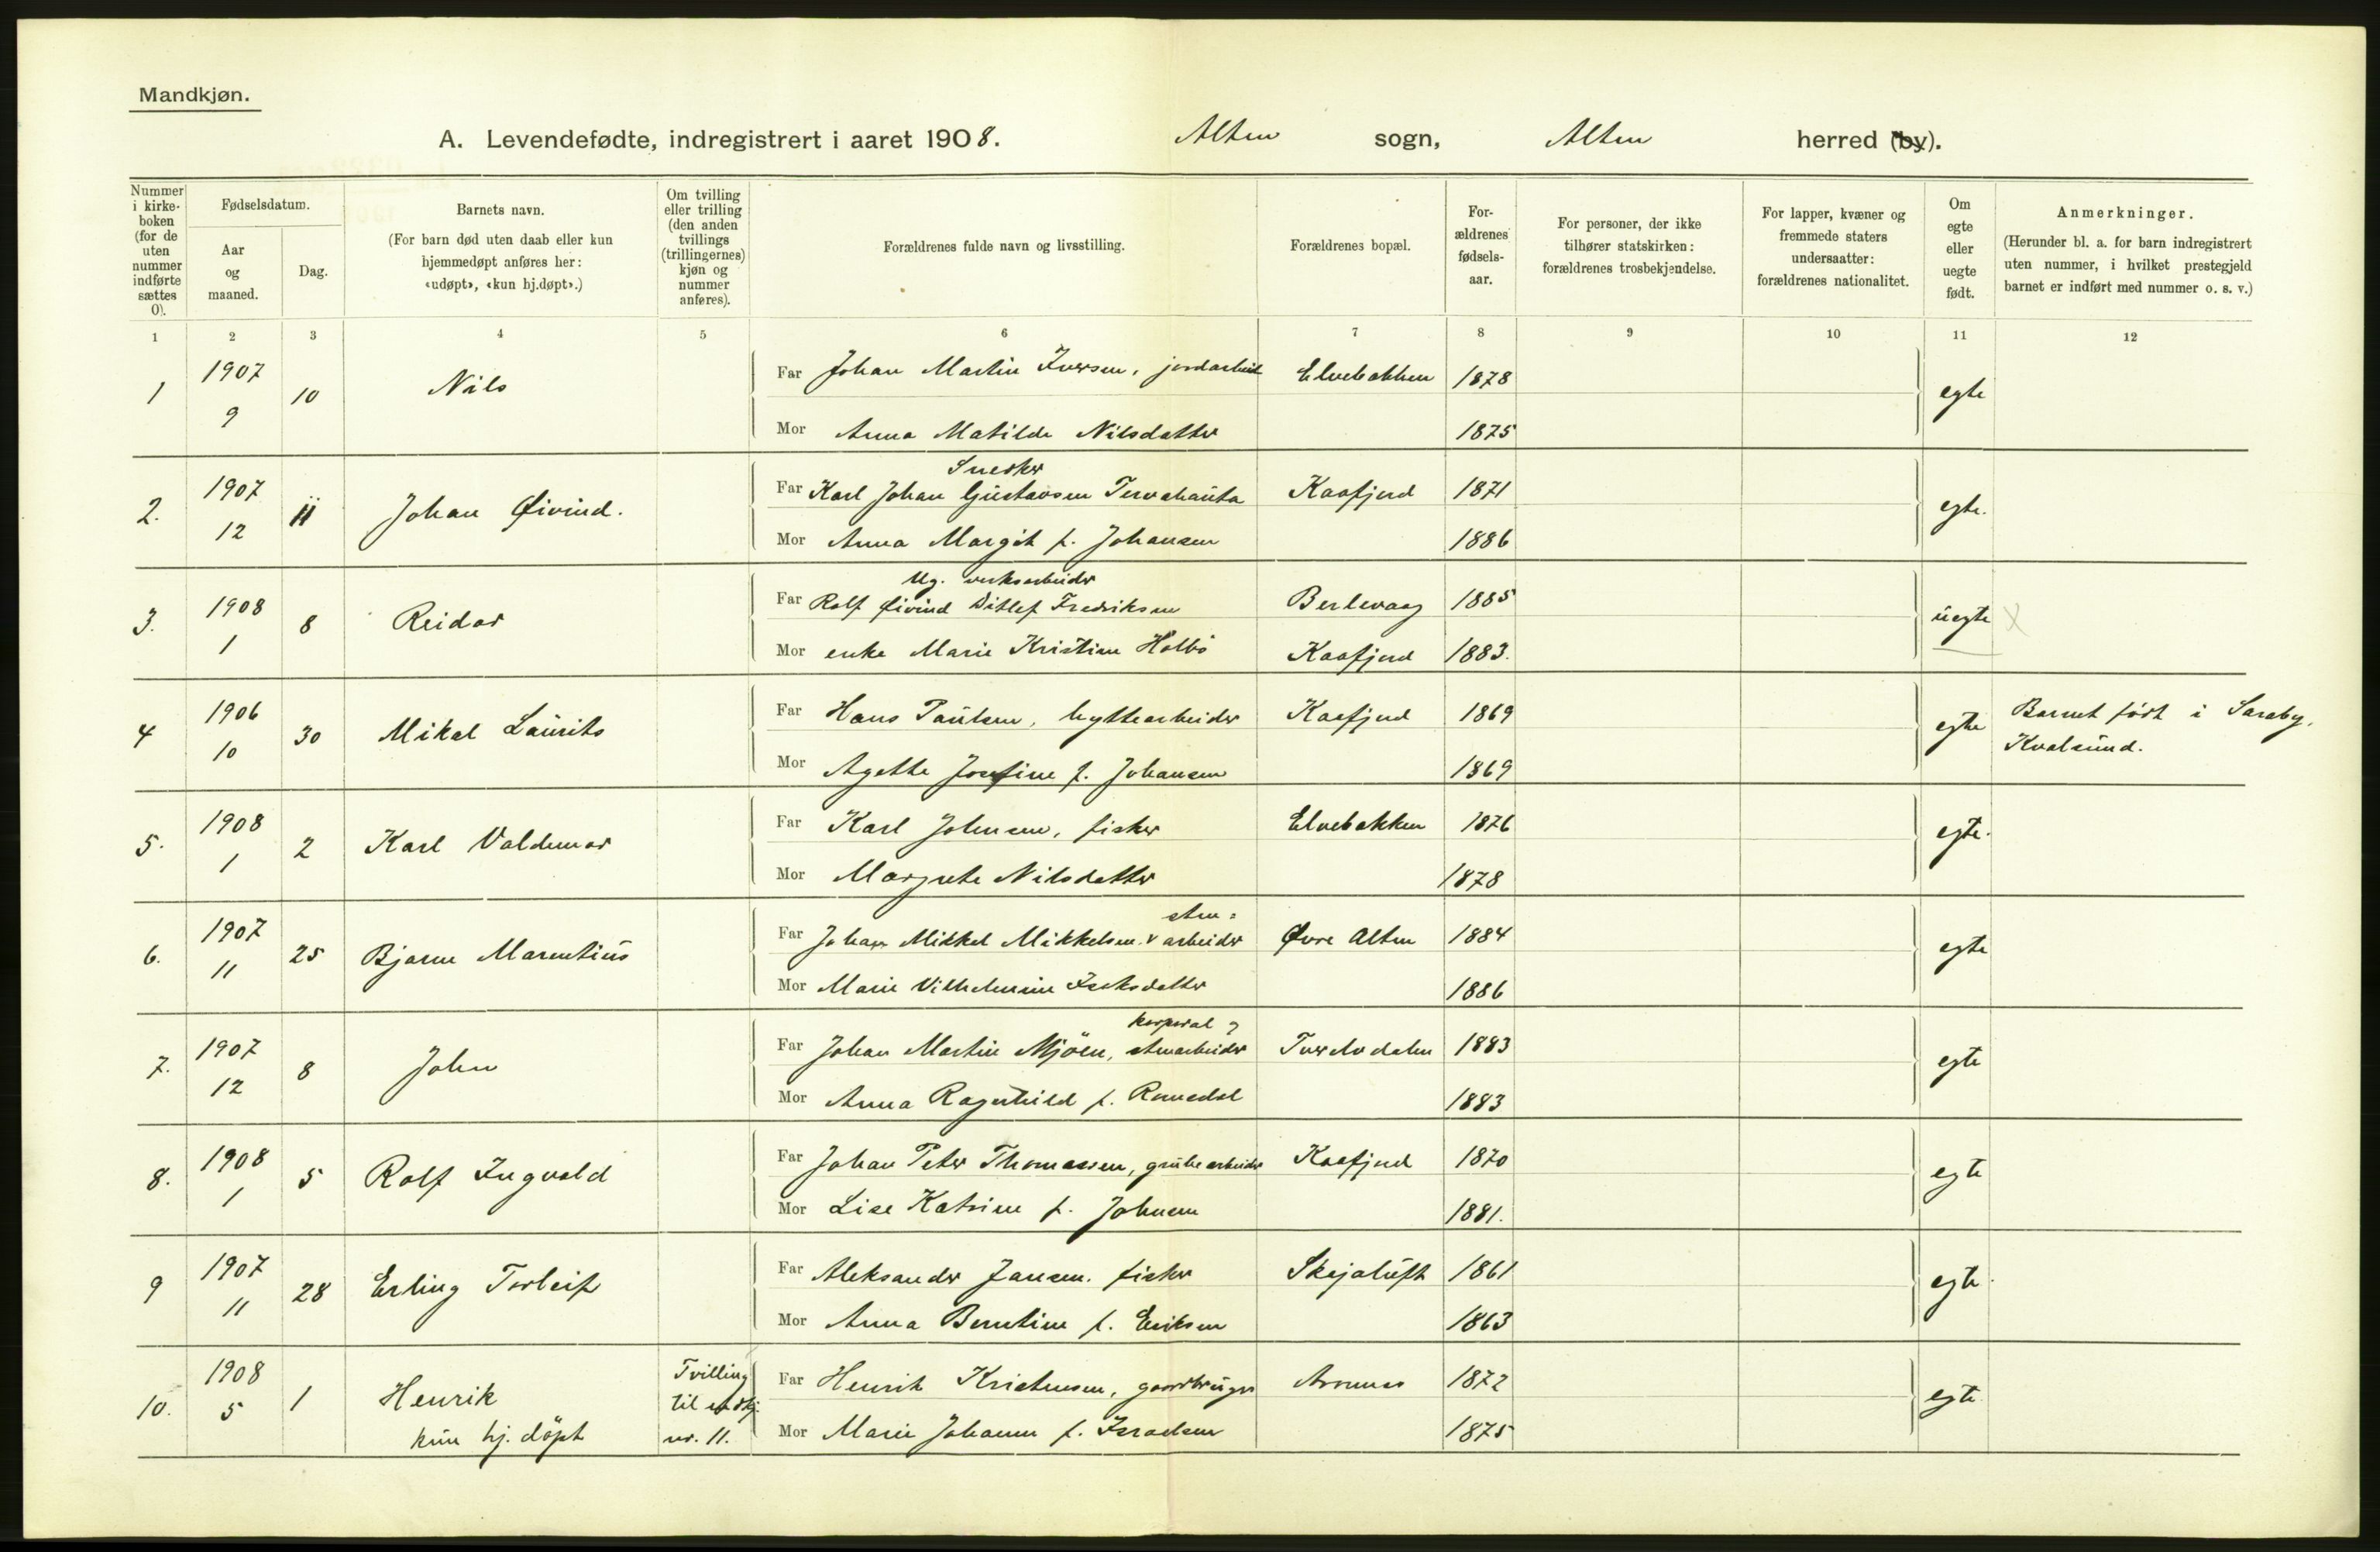 Mandkjøn.
A. Levendefødte, indregistrert i aaret 1908. Alten sogn, Alten herred (by).
Nummer i kirke-boken (for de uten nummer indførte sættes 0).
Fødselsdatum.
Aar og maaned.
Dag.
Barnets navn.
(For barn død uten daab eller kun hjemmedøpt anføres her: «udøpt», «kun hj.døpt».)
Om tvilling eller trilling (den anden tvillings (trillingernes) kjøn og nummer anføres).
Forældrenes fulde navn og livsstilling.
Forældrenes bopæl.
For-ældrenes fødsels-aar.
For personer, der ikke tilhører statskirken: forældrenes trosbekjendelse.
For lapper, kvæner og fremmede staters undersaatter: forældrenes nationalitet.
Om egte eller uegte født.
Anmerkninger.
(Herunder bl. a. for barn indregistrert uten nummer, i hvilket prestegjeld barnet er indført med nummer o. s. v.)
1 2 3 4 5 6 7 8 9 10 11 12
1 1907 9 10 Nils
Far Johan Martin Iversen, jordarbeid Elvebakken 1878 egte
Mor Anna Matilde Nilsdatter 1875
2. 1907 12 11 Johan Øivind.
Snedker
Far Karl Johan Gustavsen Tervahauta Kaafjord 1871 egte.
Mor Anna Margit f. Johansen 1886
3. 1908 1 8 Reidar
Ug. verksarbeider
Far Rolf Øivind Ditlef Fredriksen Berlevaag 1885 uegte x
Mor enke Marie Kristine Holbø Kaafjord 1883.
4 1906 10 30 Mikal Laurits
Far Hans Paulsen, hyttearbeider Kaafjord 1869 egte Barnet født i Saraby,
Kvalsund.
Mor Agethe Josefine f. Johansen 1869
5. 1908 1 2 Karl Valdemar
Far Karl Johnsen, fisker Elvebakken 1876 egte.
Mor Margrete Nilsdatter 1878
6. 1907 11 25 Bjarne Marentius
sten-
Far Johan Mikkel Mikkelsen v arbeider Øvre Alten 1884 egte
Mor Marie Vilhelmine Isaksdatter 1886
7. 1907 12 8 John
korporal
Far Johan Martin Mjöen, stenarbeider Tverelvdalen 1883 egte
Mor Anna Ragnhild f. Romedal 1883
8. 1908 1 5 Rolf Ingvald
Far Johan Peter Thomassen, grubearbeider Kaafjord 1870 egte
Mor Lise Katrine f. Johnsen 1881.
9 1907 11 28 Erling Torleif
Far Aleksander Jansen. fisker Skejaluft 1861 egte.
Mor Anna Berntine f. Eriksen 1863
10. 1908 5 1 Henrik
kun hj. döpt
Tvilling
til
nr. 11.
Far Henrik Kristensen, gaardbruger Aronnes 1872 egte
Mor Marie Johanne f. Israelsen 1875